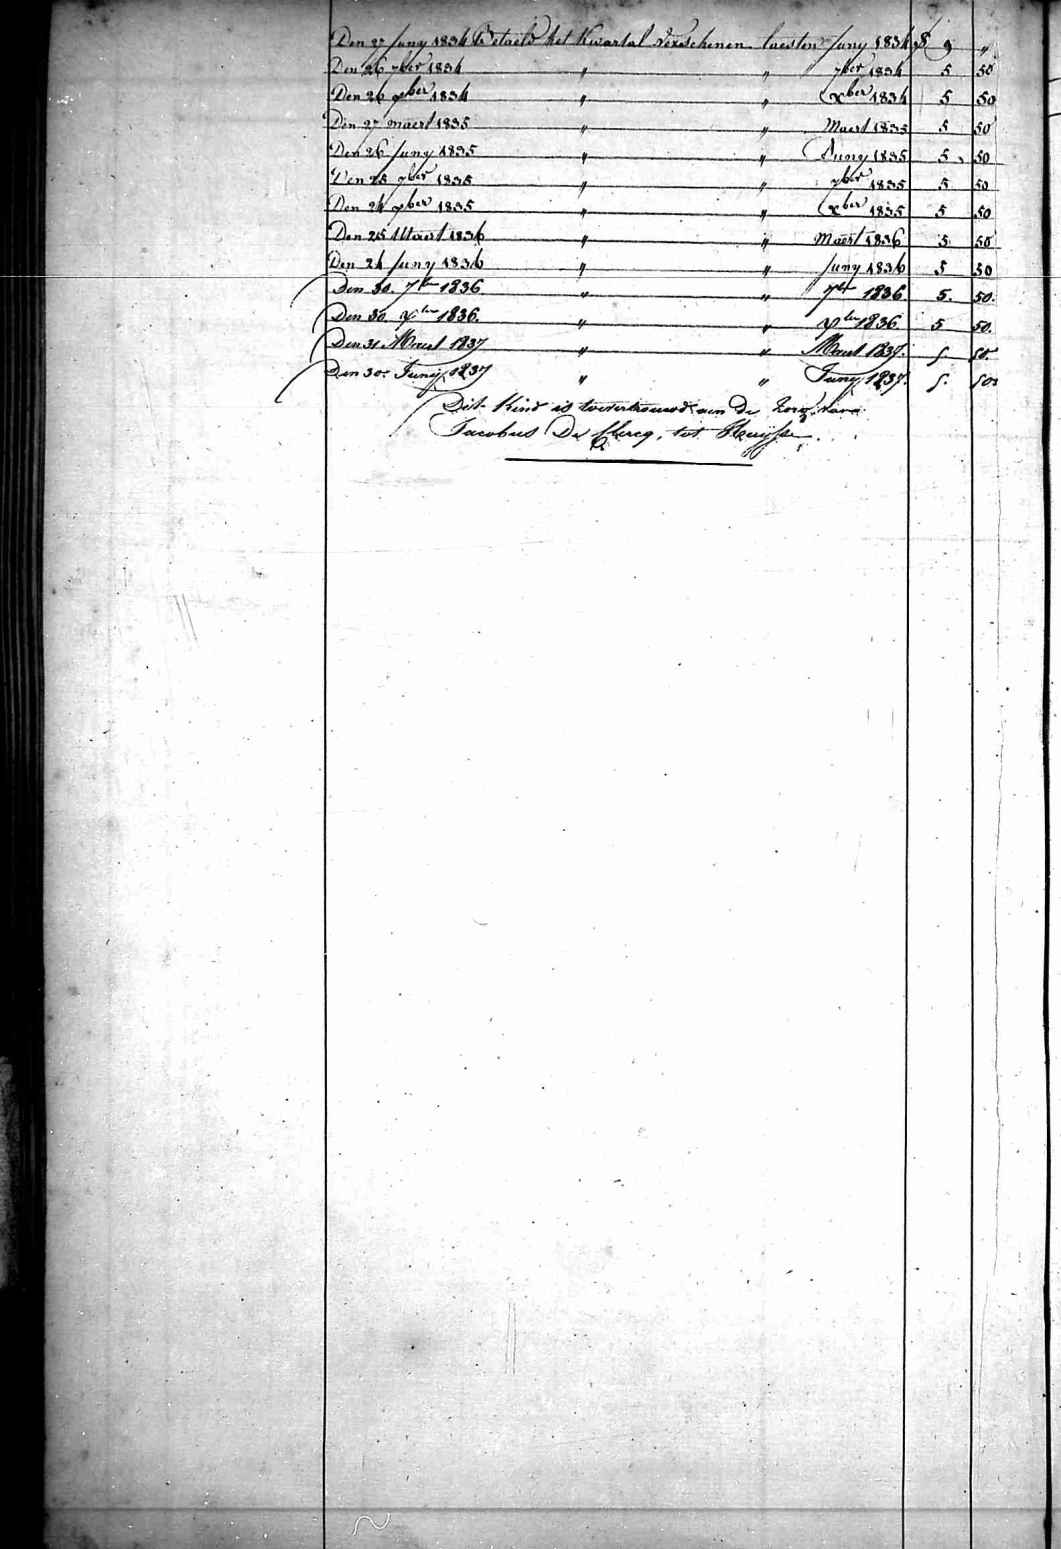 Den 27 Juny 1834 Betaeld het Kwartal Verschenen laesten Juny 1834 9 "
Den 26 7ber 1834 " " 7ber 1834 5 50
Den 26 xber 1834 " " xber 1834 5 50
Den 27 maert 1835 " " Maert 1835 5 50
Den 26 Juny 1835 " " Juny 1835 5 50
Den 25 7ber 1835 " " 7ber 1835 5 50
Den 24 xber 1835 " " xber 1835 5 50
Den 25 Maert 1836 " " Maert 1836 5 50
Den 24 Juny 1836 " " Juny 1836 5 50
Den 30. 7ber 1836. " " 7ber 1836 5. 50.
Den 30 xber 1836. " " xber 1836. 5 50.
Den 31 Maert 1837 " " Maert 1837. 5. 50.
Den 30 Juny 1837 " " Juny 1837. 5. 50
Dit Kind is toevertrouwd aen De Zorg van
Jacobus De Clercq, tot Huysse.